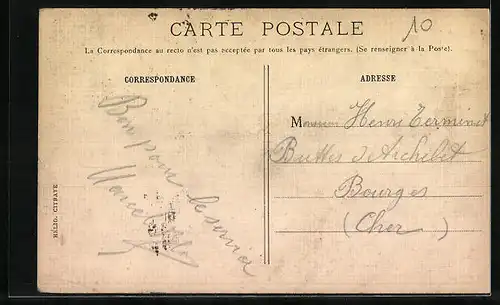 CARTE POSTALE
10
La Correspondance au recto n'est pas acceptée par tous les pays étrangers. (Se renseigner à la Poste).
CORRESPONDANCE
Bon pour le service
Marcel
ADRESSE
Monsieur Henri Terminet
Buttes d'Archelet
Bourges
(Cher)
HÉLIO. CITRATE